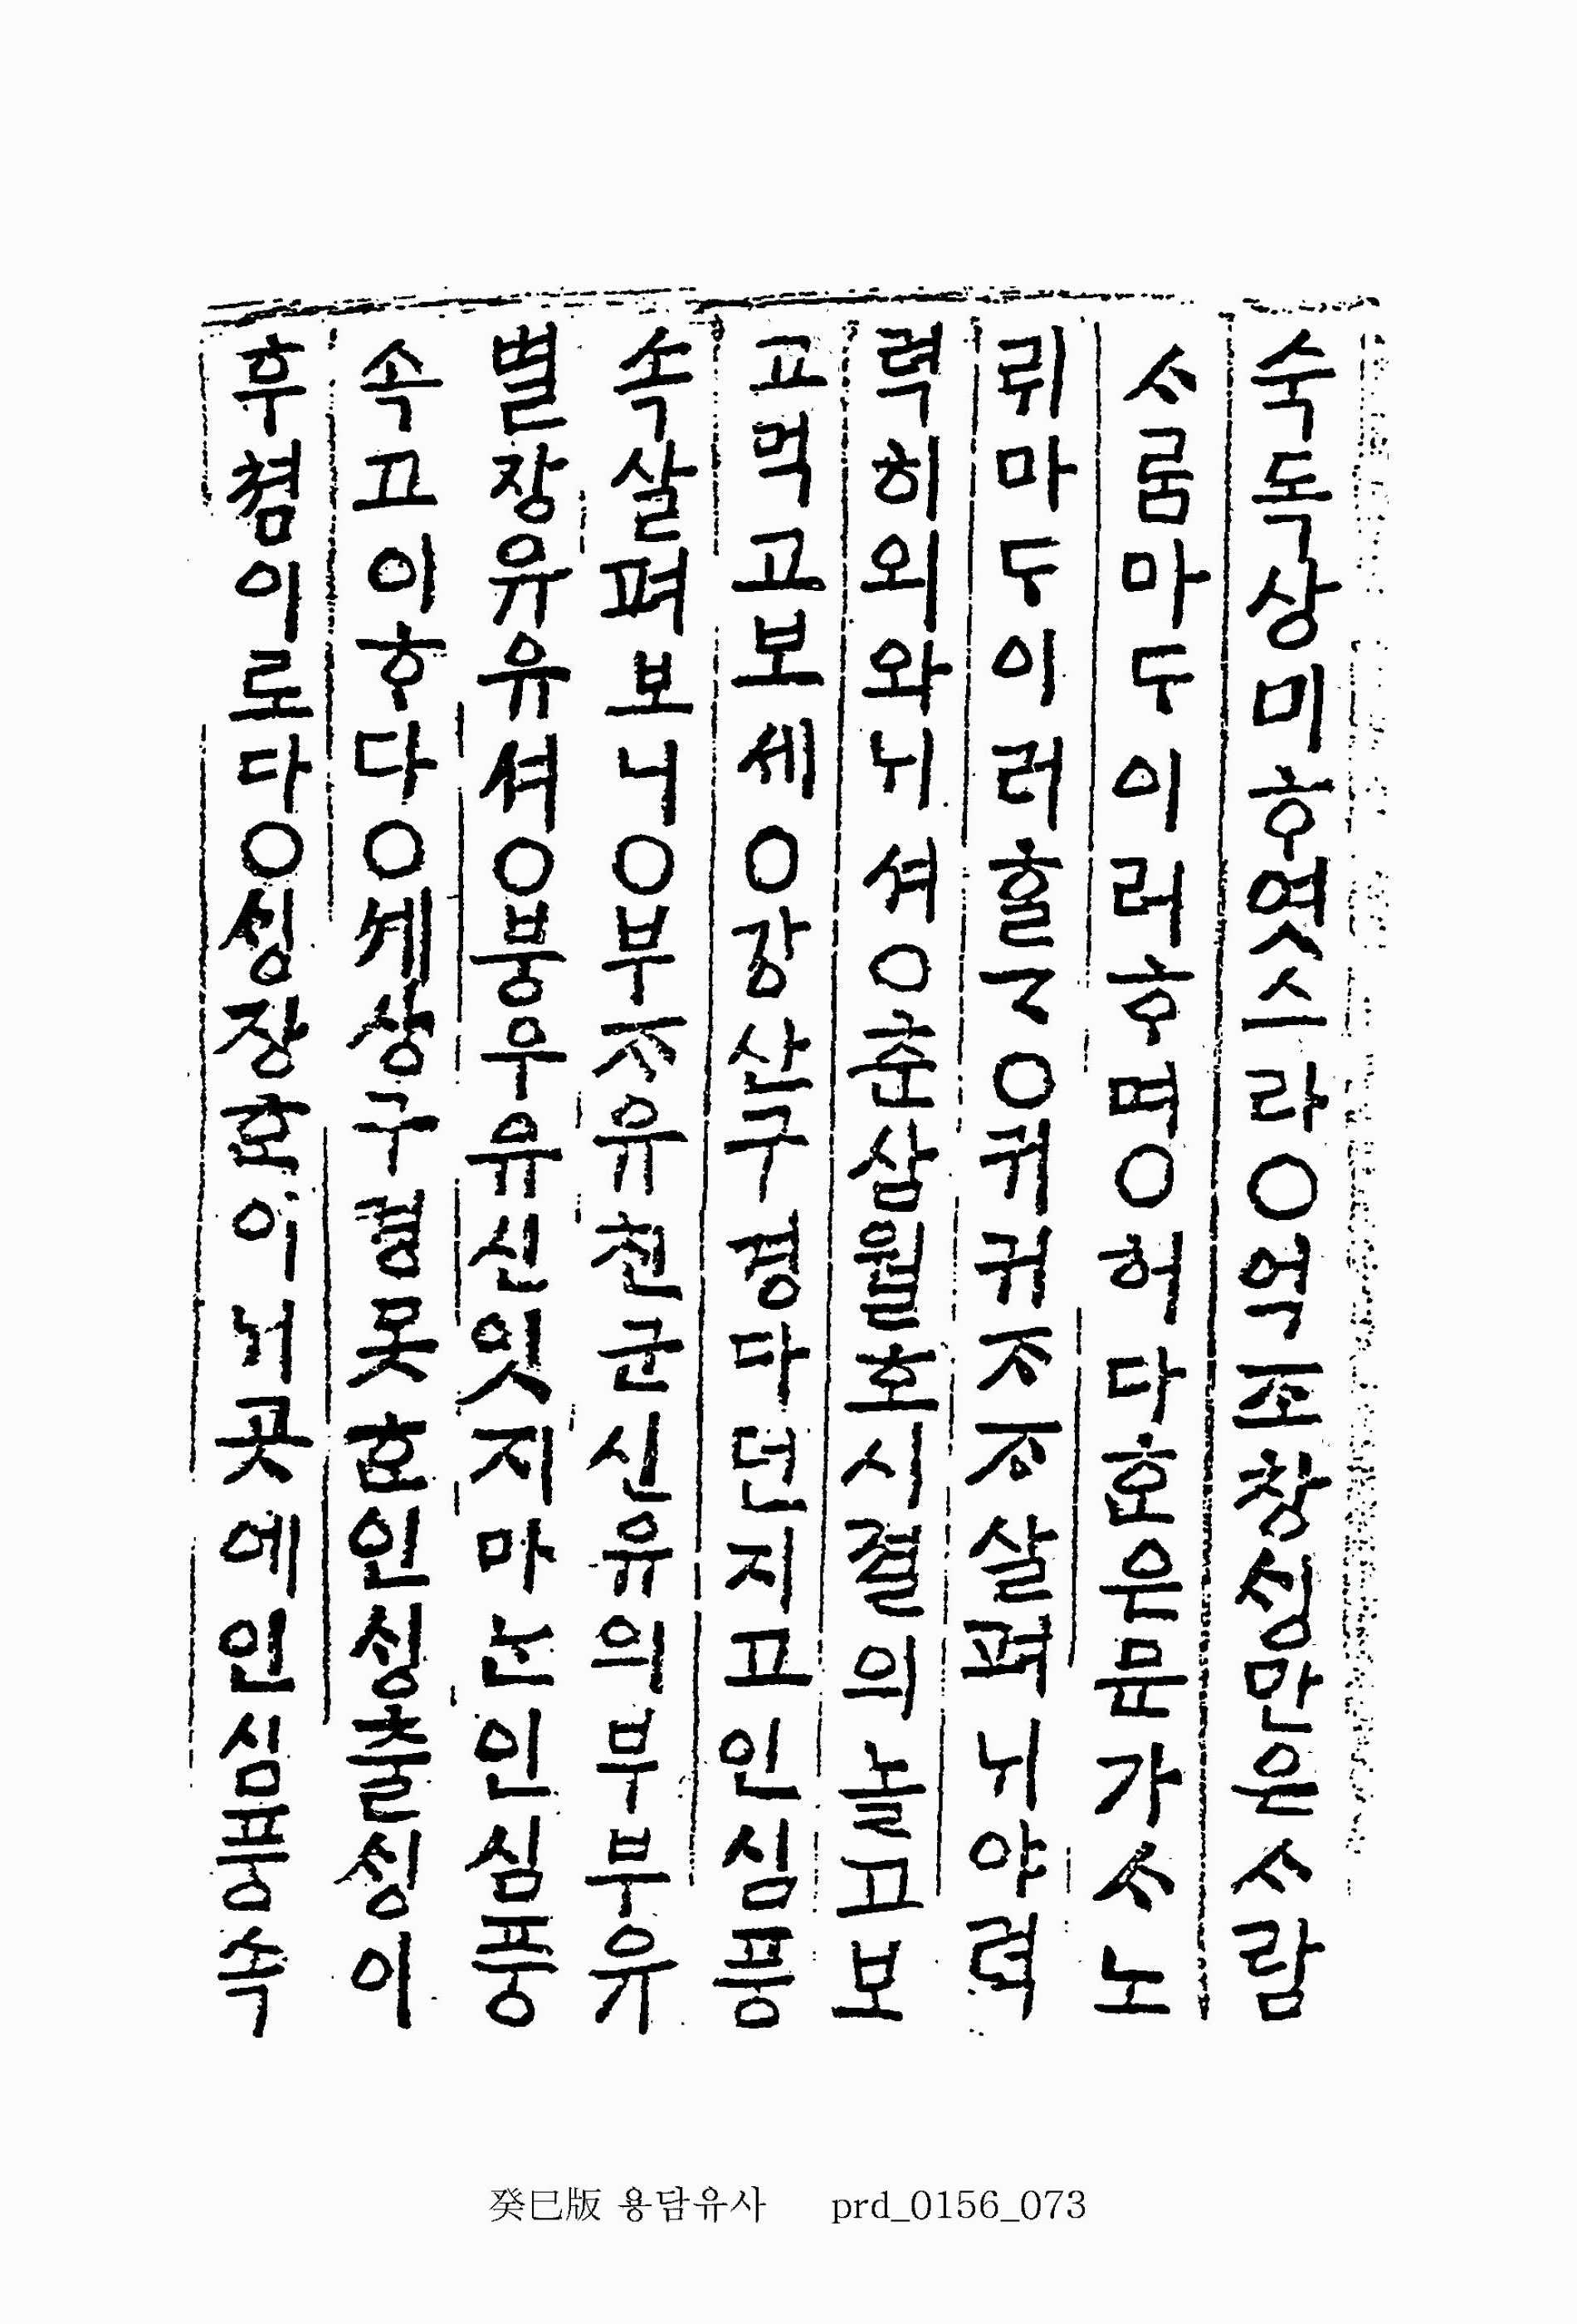 숙독상미ᄒᆞ엿스라○억조창싱만은ᄉᆞ람
ᄉᆞ룸마ᄃᆞ이러ᄒᆞ며○허다ᄒᆞᆫ은문가ᄉᆞ노
릐마ᄃᆞ이러ᄒᆞᆯᄭᆞ○귀귀ᄌᆞᄌᆞ살펴ᄂᆡ야력
력히외와ᄂᆡ셔○춘삼월호시졀의놀고보
고먹고보세○강산구경다던지고인심풍
속살펴보니○부ᄌᆞ유친군신유의부부유
별장유유셔○붕우유신잇지마ᄂᆞᆫ인심풍
속고이ᄒᆞ다○셰상구경못ᄒᆞᆫ인싱출싱이
후쳠이로다○싱장ᄒᆞᆫ이ᄂᆡ곳에인심풍속
癸巳版 용담유사 prd_0156_073